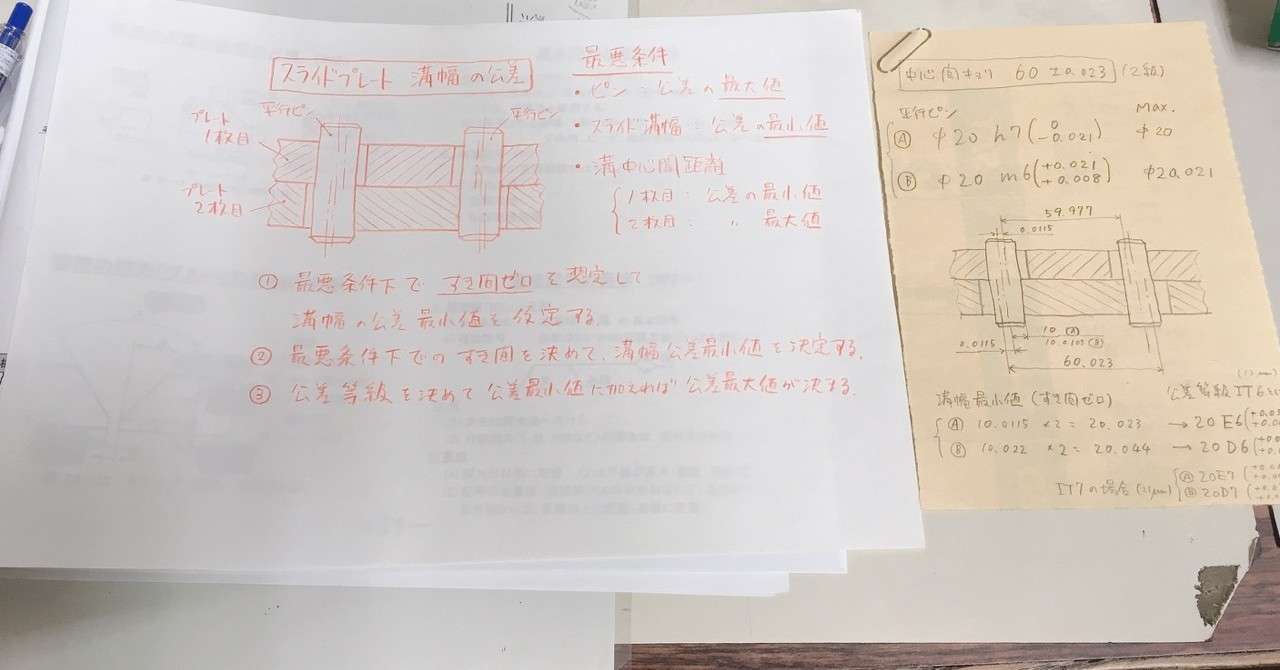 スライドプレート 溝幅の公差
平行ピン
平行ピン
プレート
1枚目
プレート
2枚目
最悪条件
・ピン：公差の最大値
・スライド溝幅：公差の最小値
・溝中心間距離
1枚目：公差の最小値
2枚目： 〃 最大値
① 最悪条件下ですき間ゼロを想定して
溝幅の公差最小値を仮定する.
② 最悪条件下でのすき間を決めて、溝幅公差最小値を決定する.
③ 公差等級を決めて公差最小値に加えれば公差最大値が決まる.
中心間キョリ 60 ±0.023 (2級)
平行ピン
Max.
Ⓐ φ20 h7 (0 -0.021) φ20
Ⓑ φ20 m6 (+0.021 +0.008) φ20.021
59.977
0.0115
10 (A)
10.0105 (B)
0.0115
60.023
溝幅最小値 (すき間ゼロ)
公差等級 IT6
Ⓐ 10.0115 ×2 = 20.023 → 20 E6
Ⓑ 10.022 ×2 = 20.044 → 20 D6
IT7の場合 (21μm)
Ⓐ 20E7
Ⓑ 20D7